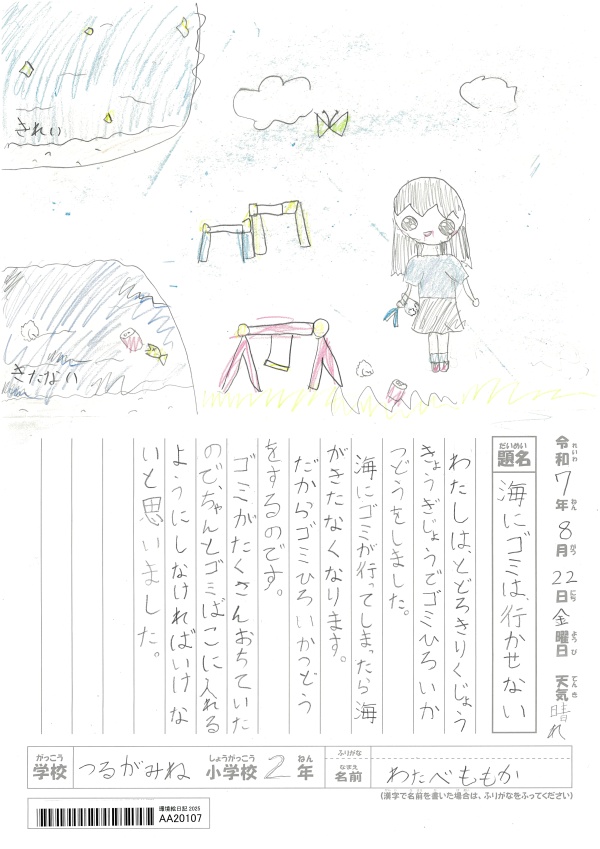 きれい
きたない
令和7年8月22日金曜日 天気晴れ
れいわ ねん がつ にち ようび てんき
だいめい
題名 海にゴミは、行かせない
わたしは、とどろきりくじょう
きょうぎじょうでゴミひろいか
つどうをしました。
海にゴミが行ってしまったら海
がきたなくなります。
だからゴミひろいかつどう
をするのです。
ゴミがたくさんおちていた
ので、ちゃんとゴミばこに入れる
ようにしなければいけな
いと思いました。
がっこう しょうがっこう ねん
学校 つるがみね 小学校 2年
ふりがな
なまえ
名前 わたべももか
(漢字で名前を書いた場合は、ふりがなをふってください)
環境絵日記 2025
AA20107